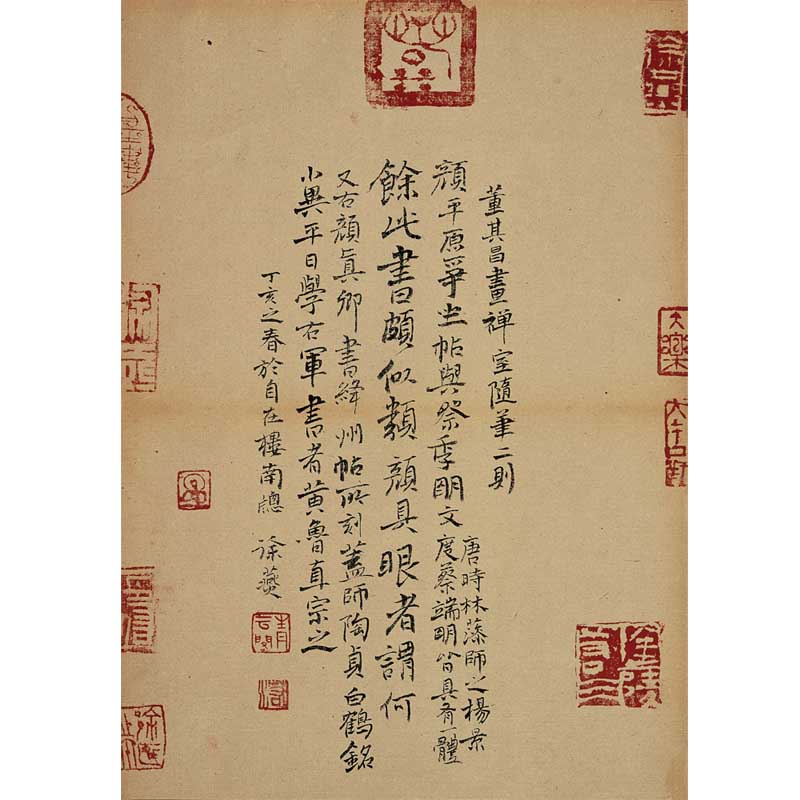 董其昌畫禅室隨筆二則
顏平原爭坐帖與祭季明文
唐時林藻師之楊景
度蔡端明皆具有一體
餘此書頗似類顏具眼者謂何
又右顏眞卿書絳州帖所刻蓋師陶貞白鶴銘
小異平日學右軍書者黃魯直宗之
丁亥之春於自在樓南總 徐燕